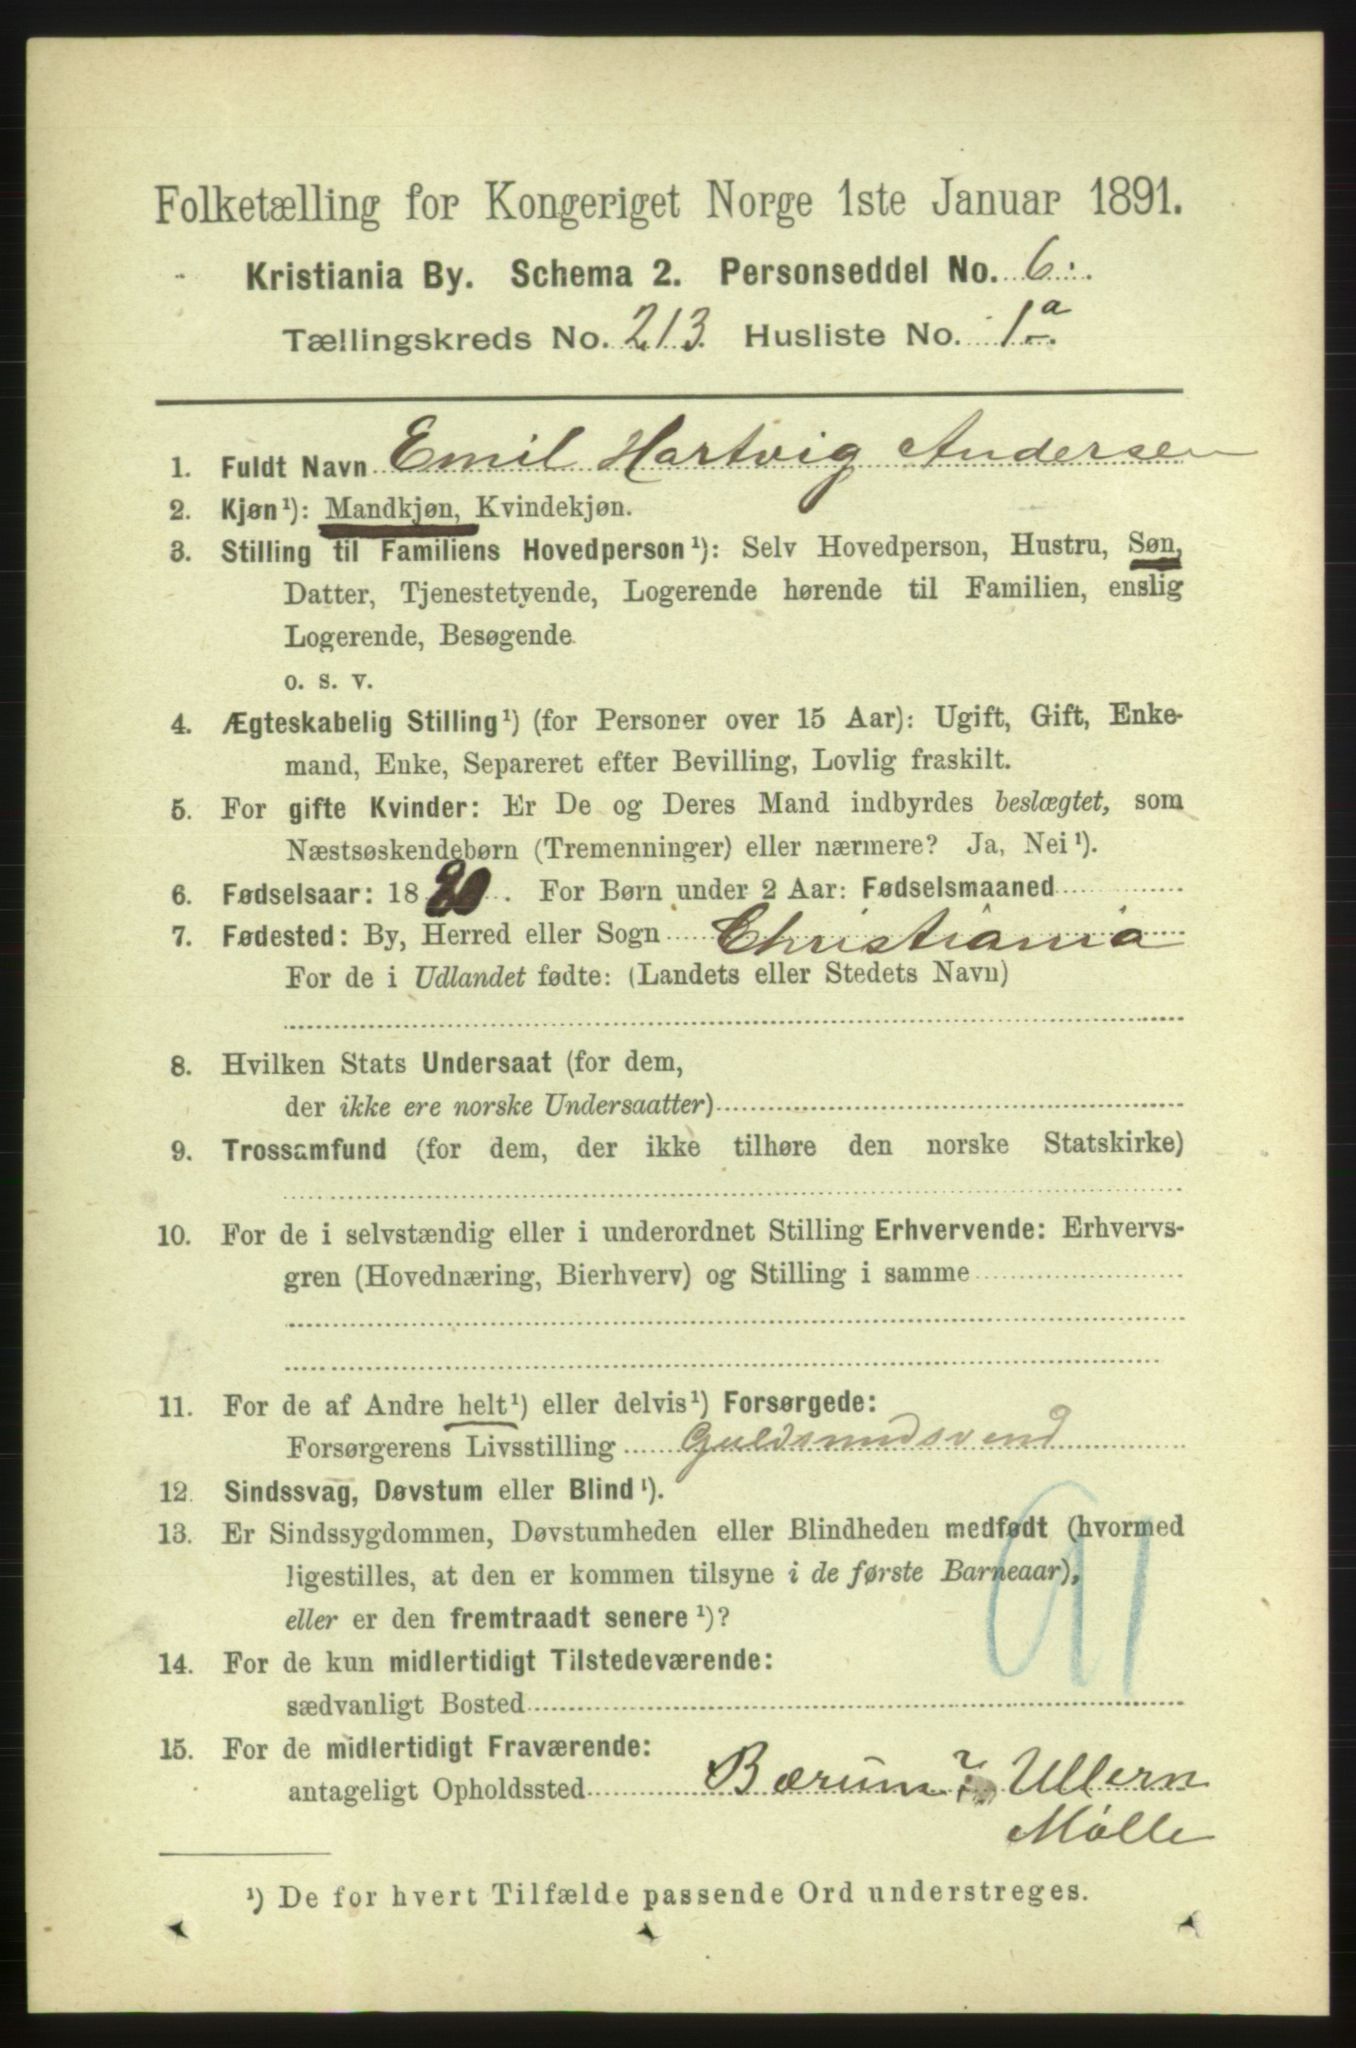 Folketælling for Kongeriget Norge 1ste Januar 1891.
Kristiania By. Schema 2. Personseddel No. 6.
Tællingskreds No. 213. Husliste No. 1a.
1. Fuldt Navn Emil Hartvig Andersen
2. Kjøn¹): Mandkjøn, Kvindekjøn.
3. Stilling til Familiens Hovedperson¹): Selv Hovedperson, Hustru, Søn,
Datter, Tjenestetyende, Logerende hørende til Familien, enslig
Logerende, Besøgende
o. s. v.
4. Ægteskabelig Stilling¹) (for Personer over 15 Aar): Ugift, Gift, Enke-
mand, Enke, Separeret efter Bevilling, Lovlig fraskilt.
5. For gifte Kvinder: Er De og Deres Mand indbyrdes beslægtet, som
Næstsøskendebørn (Tremenninger) eller nærmere? Ja, Nei¹).
6. Fødselsaar: 18 . For Børn under 2 Aar: Fødselsmaaned
7. Fødested: By, Herred eller Sogn Christiania
For de i Udlandet fødte: (Landets eller Stedets Navn)
8. Hvilken Stats Undersaat (for dem,
der ikke ere norske Undersaatter)
9. Trossamfund (for dem, der ikke tilhøre den norske Statskirke)
10. For de i selvstændig eller i underordnet Stilling Erhvervende: Erhvervs-
gren (Hovednæring, Bierhverv) og Stilling i samme
11. For de af Andre helt¹) eller delvis¹) Forsørgede:
Forsørgerens Livsstilling Guldsmedsvend
12. Sindssvag, Døvstum eller Blind¹).
13. Er Sindssygdommen, Døvstumheden eller Blindheden medfødt (hvormed
ligestilles, at den er kommen tilsyne i de første Barneaar),
eller er den fremtraadt senere¹)?
14. For de kun midlertidigt Tilstedeværende:
sædvanligt Bosted
15. For de midlertidigt Fraværende:
antageligt Opholdssted Bærum ? Ullern
Mølle
¹) De for hvert Tilfælde passende Ord understreges.